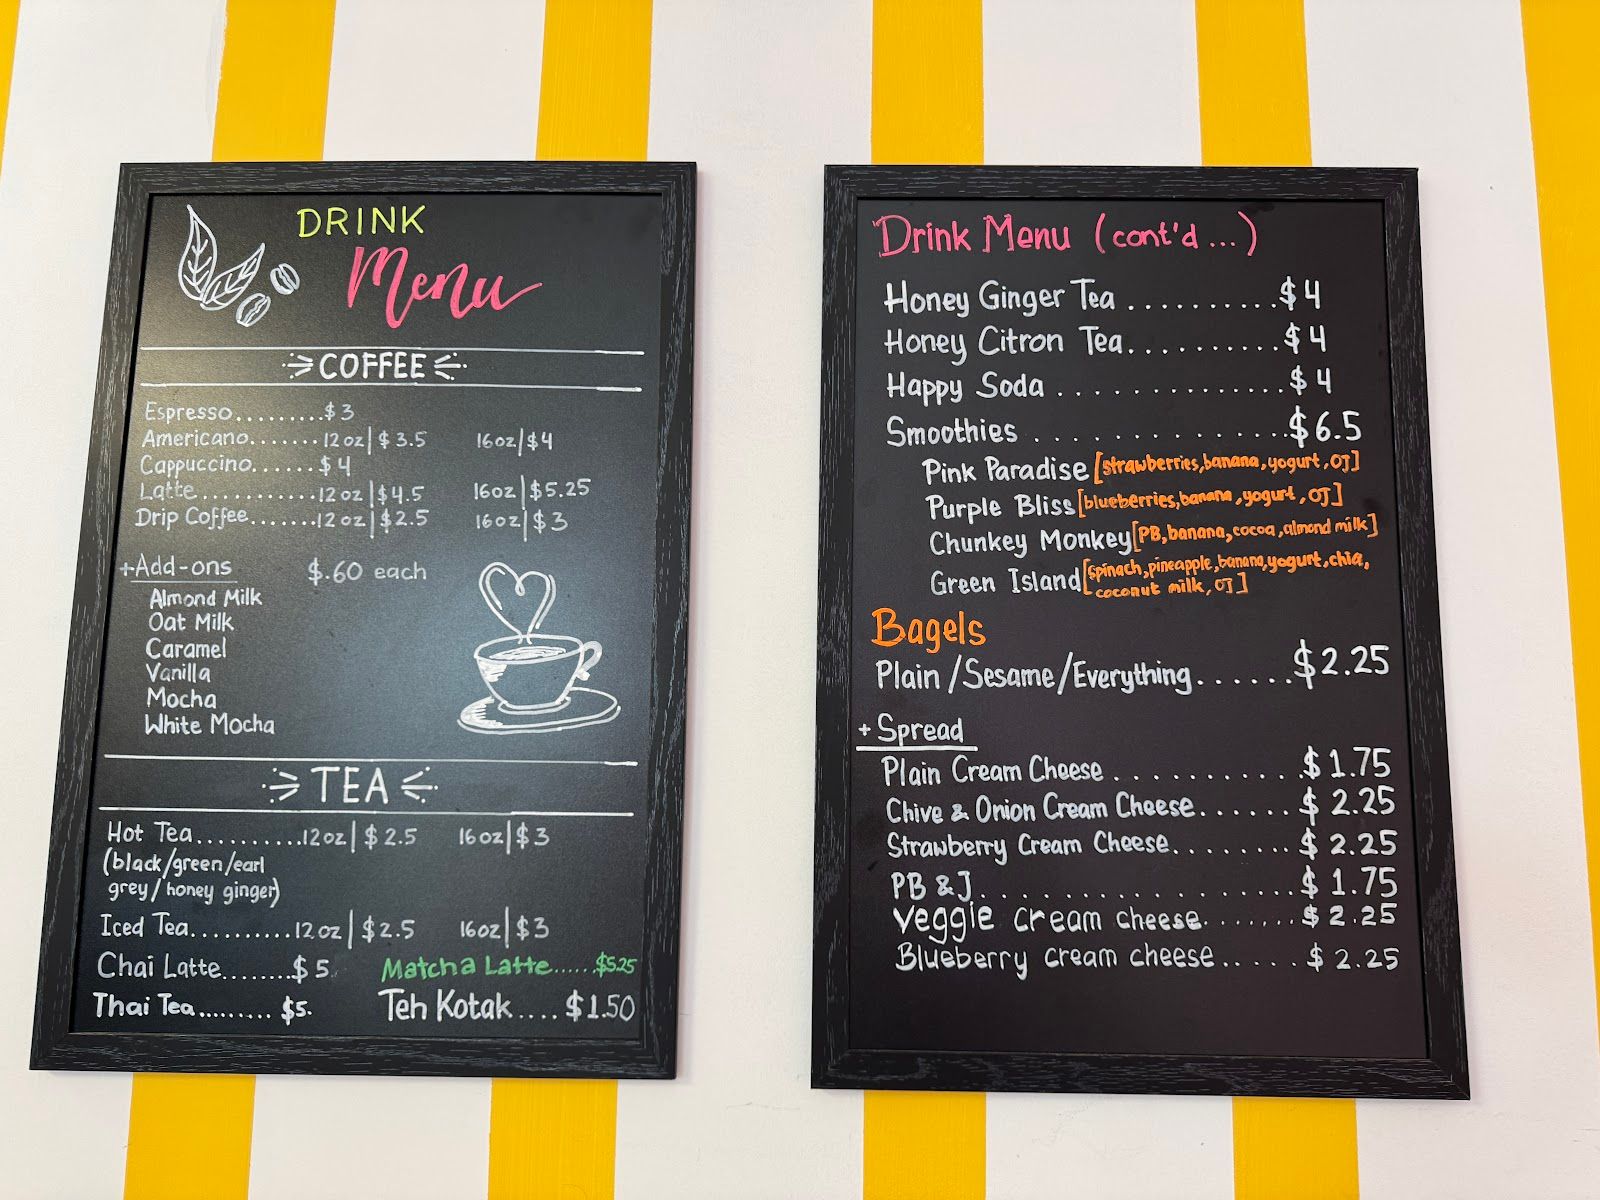 DRINK
Menu
COFFEE
Espresso.........$3
Americano.......12oz|$3.5 16oz|$4
Cappuccino......$4
Latte............12oz|$4.5 16oz|$5.25
Drip Coffee.......12oz|$2.5 16oz|$3
+Add-ons $.60 each
Almond Milk
Oat Milk
Caramel
Vanilla
Mocha
White Mocha
TEA
Hot Tea...........12oz|$2.5 16oz|$3
(black/green/earl
grey/honey ginger)
Iced Tea..........12oz|$2.5 16oz|$3
Chai Latte........$5 Matcha Latte......$5.25
Thai Tea.........$5. Teh Kotak....$1.50
Drink Menu (cont'd...)
Honey Ginger Tea..........$4
Honey Citron Tea..........$4
Happy Soda..............$4
Smoothies...............$6.5
Pink Paradise[strawberries,banana,yogurt,OJ]
Purple Bliss[blueberries,banana,yogurt,OJ]
Chunkey Monkey[PB,banana,cocoa,almond milk]
Green Island[spinach,pineapple,banana,yogurt,chia,
coconut milk,OJ]
Bagels
Plain/Sesame/Everything......$2.25
+Spread
Plain Cream Cheese...........$1.75
Chive & Onion Cream Cheese......$2.25
Strawberry Cream Cheese........$2.25
PB & J...................$1.75
Veggie cream cheese.......$2.25
Blueberry cream cheese.....$2.25